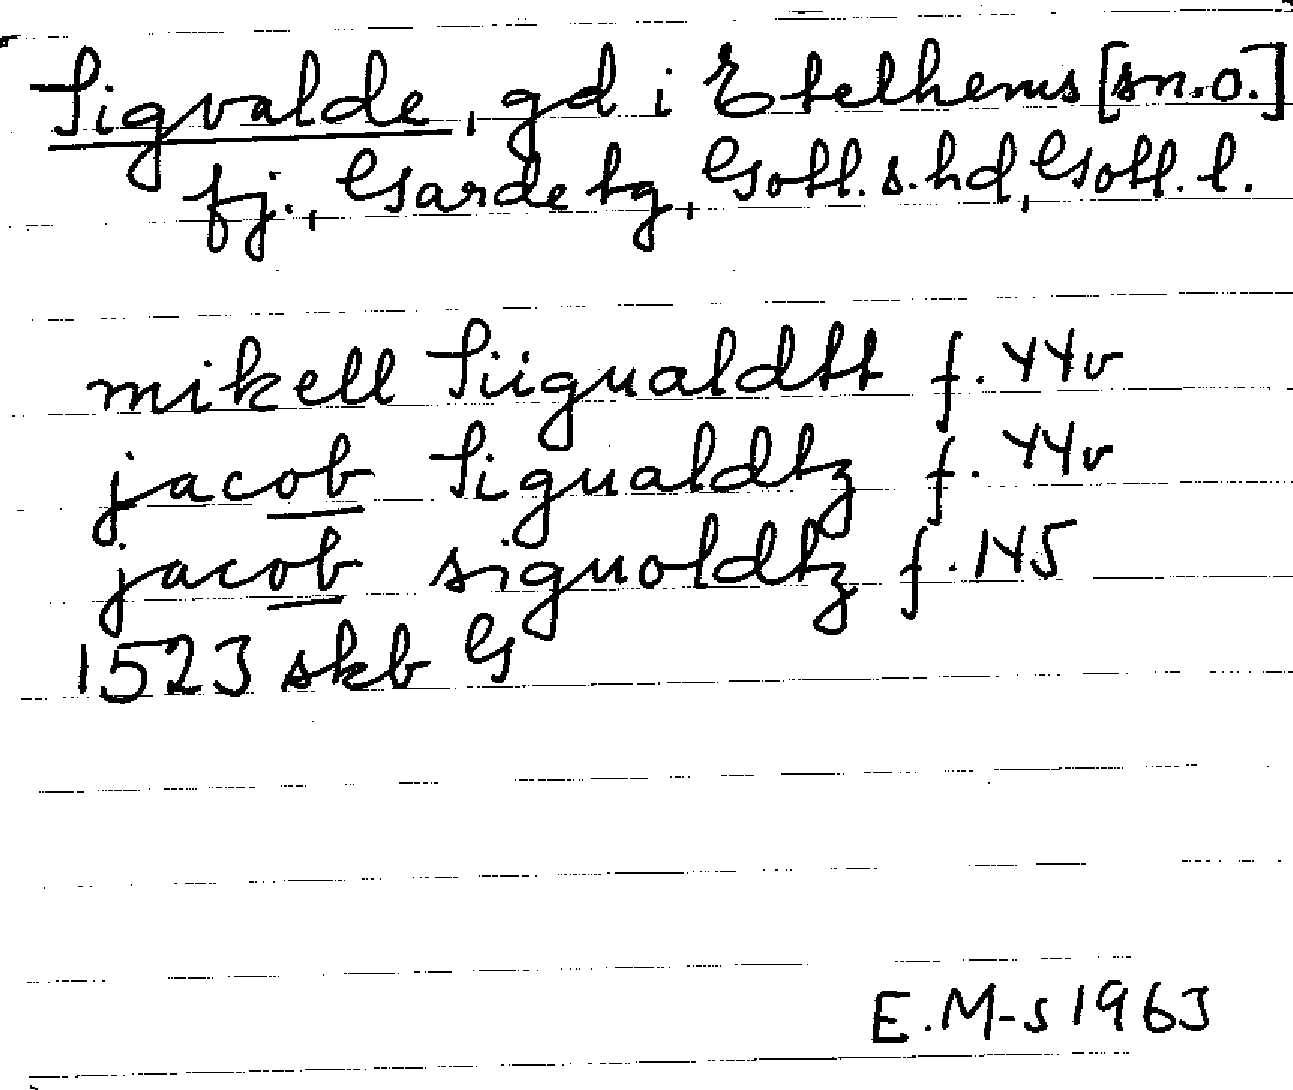 Sigvalde, gd i Etelhems [sn.o.]
fj., Garde tg, Gotl. s. hd, Gotl. l.
mikell Siigualdtt f. 44v
jacob Sigualdtz f. 44v
jacob siguoldtz f. 145
1523 skb G
E. M-s 1963